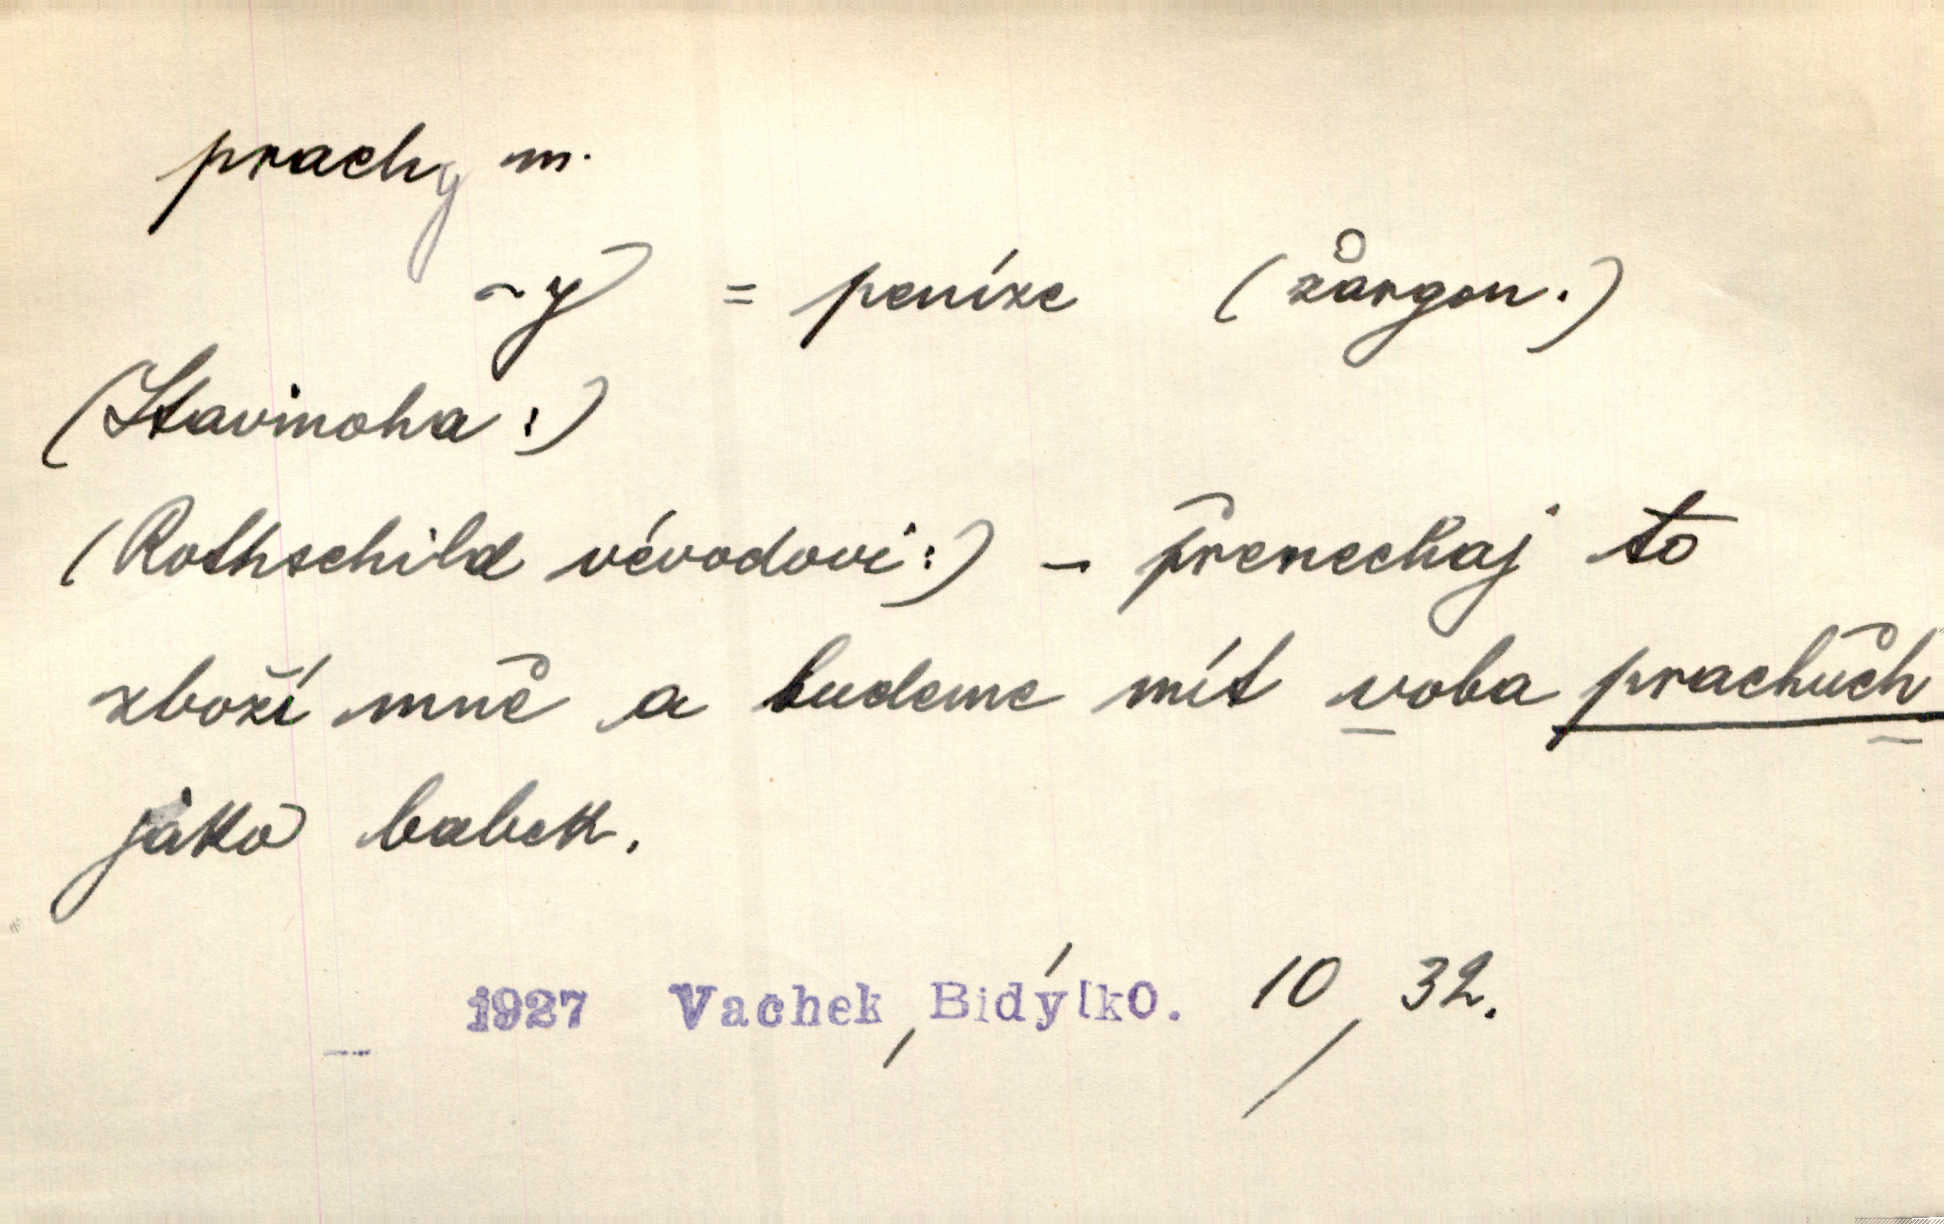 prachy m.
~y = peníze (žargon.)
(Stavinoha:)
(Rothschild vévodovi:) – přenechaj to
zboží mně a budeme mít voba prachůch
jako babek.
1927 Vachek, Bidýlko. 10, 32.